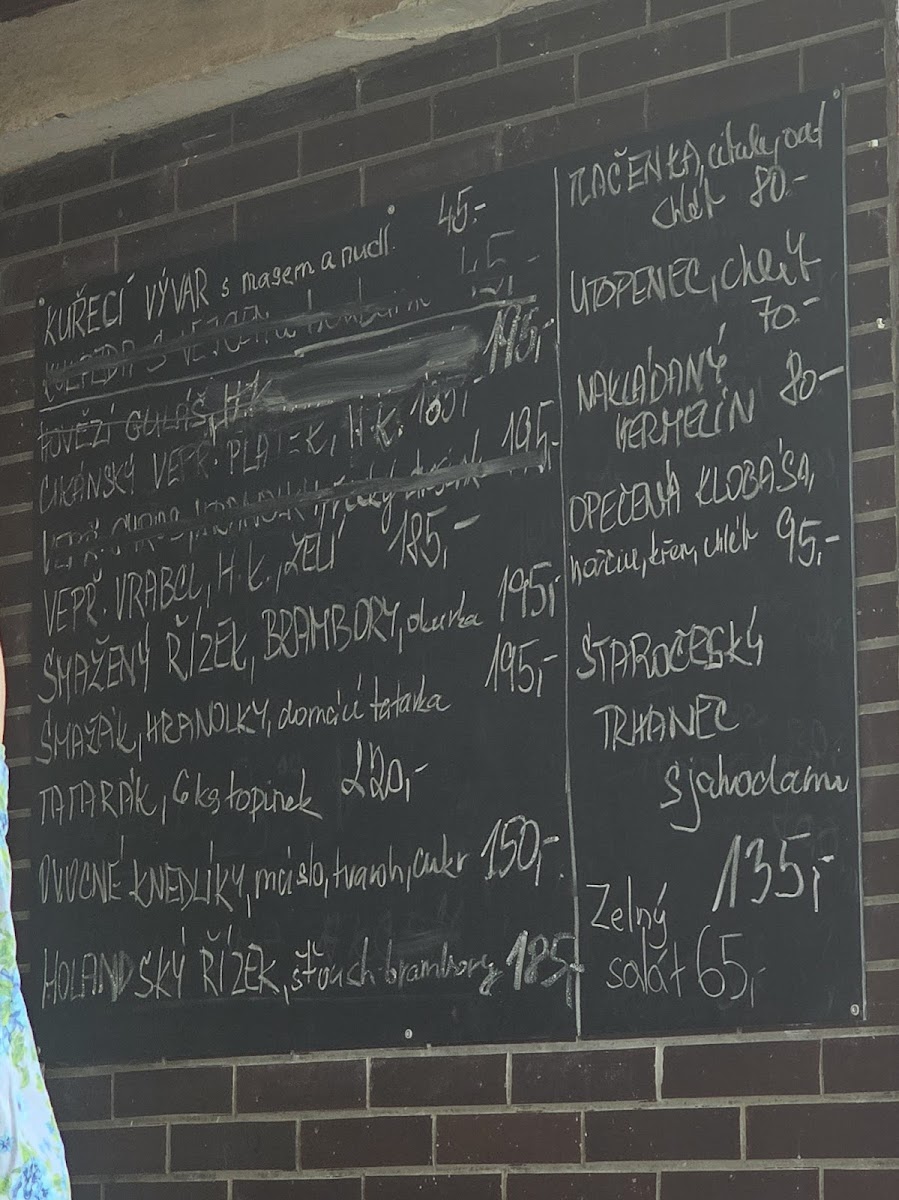 KUŘECÍ VÝVAR s masem a nudl. 45.-
HOVĚZÍ GULÁŠ, H.K. 195,-
CIKÁNSKÝ VEPŘ. PLÁTEK, H.K. 185,-
VEPŘ. 195,-
VEPŘ. VRABEC, H.K., ZELÍ 185,-
SMAŽENÝ ŘÍZEK, BRAMBORY, okurka 195,-
SMAŽÁK, HRANOLKY, domácí tatarka 195,-
TATARÁK, 6 ks topinek 220,-
OVOCNÉ KNEDLÍKY, máslo, tvaroh, cukr 150,-
HOLANDSKÝ ŘÍZEK, šťouch. brambory 185,-
TLAČENKA, cibule, ocet
chléb 80.-
UTOPENEC, chléb
70.-
NAKLÁDANÝ
HERMELÍN 80-
OPEČENÁ KLOBÁSA,
hořčice, křen, chléb 95,-
STAROČESKÝ
TRHANEC
s jahodami
135,-
Zelný
salát 65,-